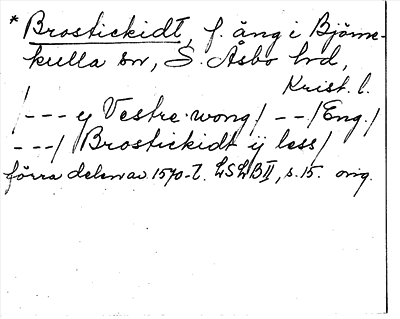 * Brostickidt, f. äng i Björne-
kulla sn, S. Åsbo hd,
Krist. l.
/--- y Vestre wong/ --/Eng./
---/ Brostickidt ij less/
förra delen av 1570-t. LSLB II, s. 15. orig.